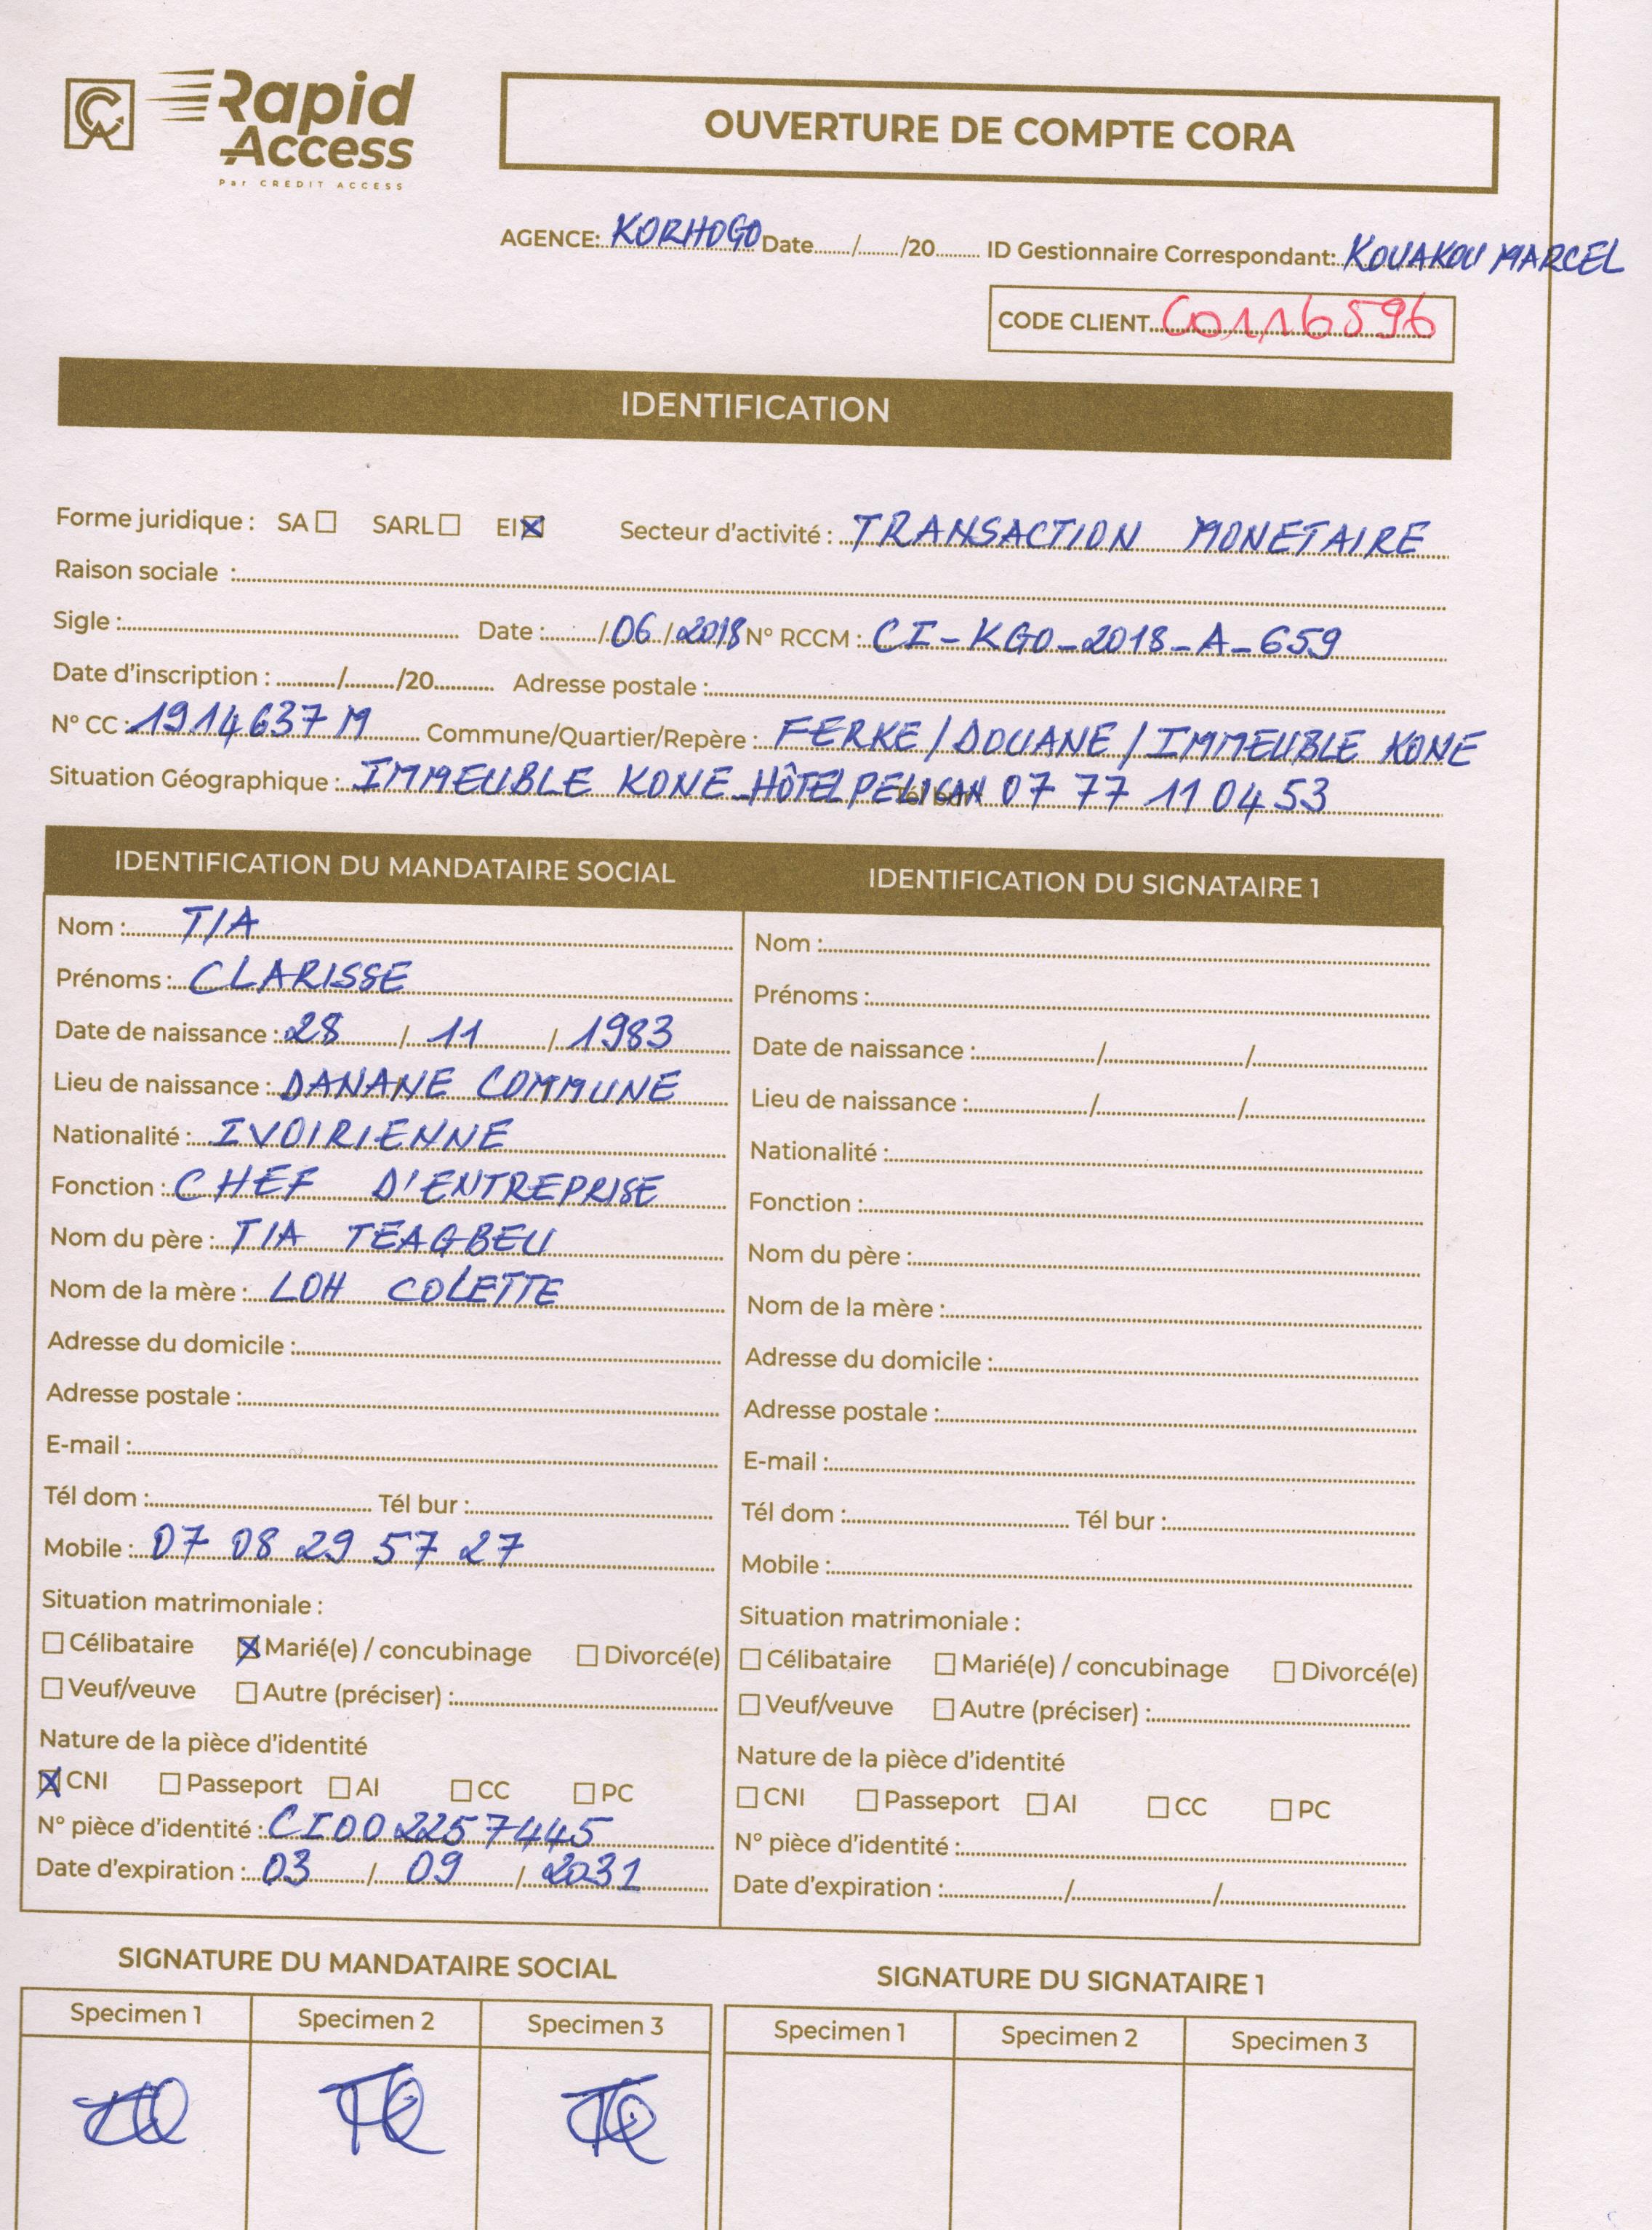 CA
Rapid
Access
Par CREDIT ACCESS
OUVERTURE DE COMPTE CORA
AGENCE: KORHOGO Date......./......./20......... ID Gestionnaire Correspondant: KOUAKOU MARCEL
CODE CLIENT C0116596
IDENTIFICATION
Forme juridique : SA ☐ SARL ☐ EI ☒ Secteur d'activité : TRANSACTION MONETAIRE
Raison sociale :
Sigle : Date : ......./06/2018 N° RCCM : CI-KGO-2018-A-659
Date d'inscription : ........../........./20........... Adresse postale :
N° CC : 1914637 M Commune/Quartier/Repère : FERKE / DOUANE / IMMEUBLE KONE
Situation Géographique : IMMEUBLE KONE - HÔTEL PELICAN 07 77 11 04 53
IDENTIFICATION DU MANDATAIRE SOCIAL
Nom : TIA
Prénoms : CLARISSE
Date de naissance : 28 / 11 / 1983
Lieu de naissance : DANANE COMMUNE
Nationalité : IVOIRIENNE
Fonction : CHEF D'ENTREPRISE
Nom du père : TIA TEAGBEU
Nom de la mère : LOH COLETTE
Adresse du domicile :
Adresse postale :
E-mail :
Tél dom : Tél bur :
Mobile : 07 08 29 57 27
Situation matrimoniale :
☐ Célibataire ☒ Marié(e) / concubinage ☐ Divorcé(e)
☐ Veuf/veuve ☐ Autre (préciser) :
Nature de la pièce d'identité
☒ CNI ☐ Passeport ☐ AI ☐ CC ☐ PC
N° pièce d'identité : CI002257445
Date d'expiration : 03 / 09 / 2031
IDENTIFICATION DU SIGNATAIRE 1
Nom :
Prénoms :
Date de naissance : / /
Lieu de naissance : / /
Nationalité :
Fonction :
Nom du père :
Nom de la mère :
Adresse du domicile :
Adresse postale :
E-mail :
Tél dom : Tél bur :
Mobile :
Situation matrimoniale :
☐ Célibataire ☐ Marié(e) / concubinage ☐ Divorcé(e)
☐ Veuf/veuve ☐ Autre (préciser) :
Nature de la pièce d'identité
☐ CNI ☐ Passeport ☐ AI ☐ CC ☐ PC
N° pièce d'identité :
Date d'expiration : / /
SIGNATURE DU MANDATAIRE SOCIAL
Specimen 1 Specimen 2 Specimen 3
SIGNATURE DU SIGNATAIRE 1
Specimen 1 Specimen 2 Specimen 3